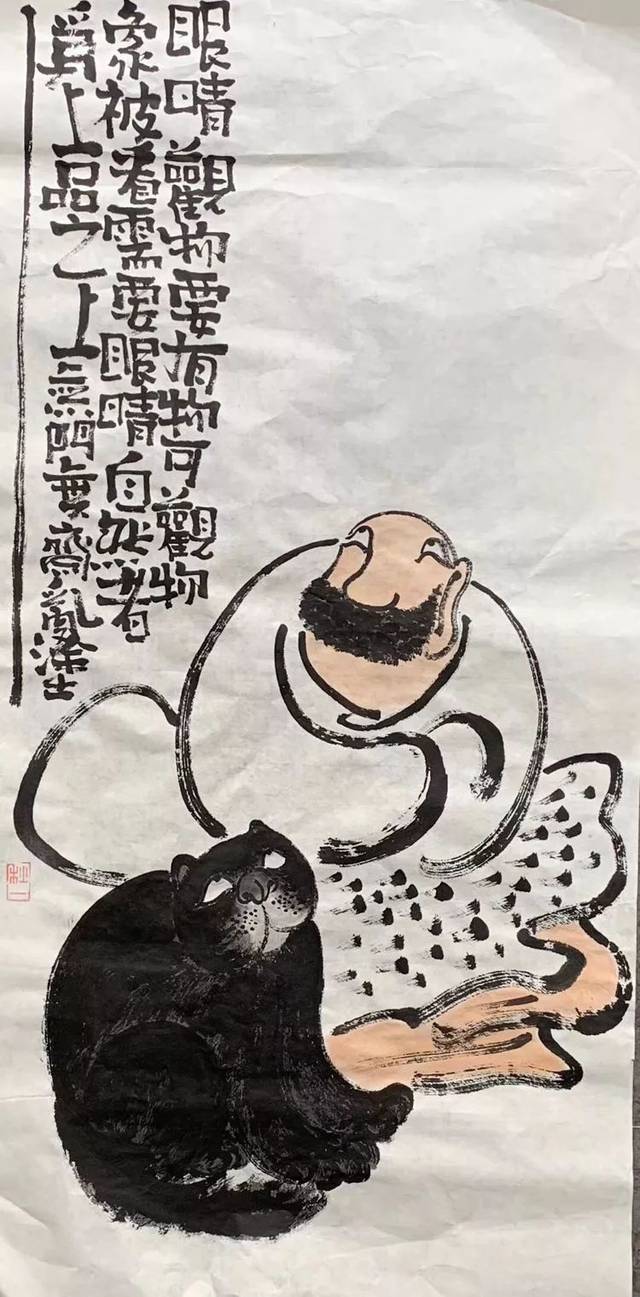 眼晴觀物要有物可觀物
象被看需要眼晴自然者
爲上品之上無門無齋亂塗士